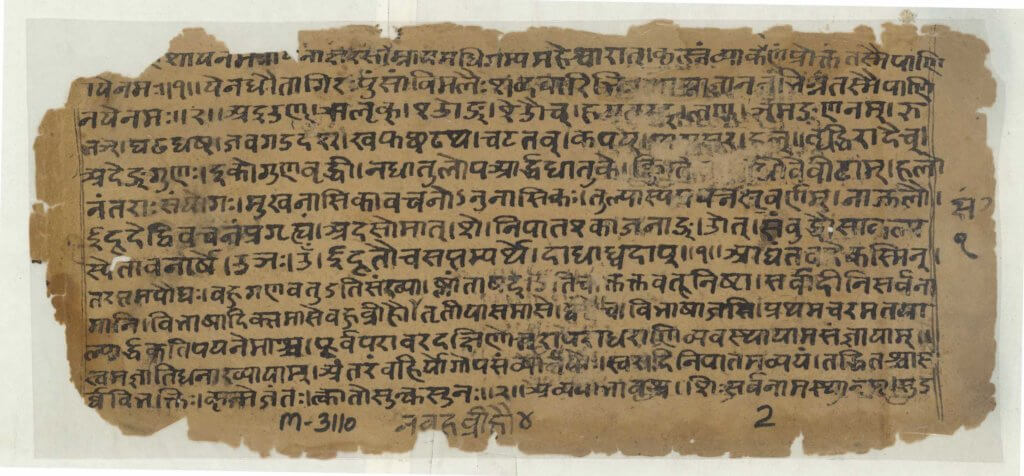 म्नायमधिगम्य महेश्वारात्। कृत्स्नं व्याकरणं प्रोक्तं तस्मै पाणि
नयेनमः॥१॥ येन धौता गिरः पुंसां विमलैः शब्दवारिभिः भिन्नं तस्मै पाणि
नयेनमः॥२॥ अइउण्। ऋलृक्। एओङ्। ऐऔच्। हयवरट्। लण्। ञमङणनम्। झ
भञ्। घढधष्। जबगडदश्। खफछठथचटतव्। कपय्। हल्। वृद्धिरादैच्।
अदेङ्गुणः। इको गुणवृद्धी। न धातुलोप आर्द्धधातुके। वेवीटाम्। हलो
नंतराः संयोगः। मुखनासिकावचनोऽनुनासिकः। तुल्यास्यप्रयत्नं सवर्णम्। नाज्झलौ।
ईदूदेद्विवचनं प्रगृह्यं। अदसो मात्। शे। निपात एकाजनाङ्। ओत्। संबुद्धौ शाकल्य
स्येतावनार्षे। उञः। ऊँ। ईदूतौ च सप्तम्यर्थे। दाधाघ्वदाप्॥१॥ आद्यंतवदेकस्मिन्।
तरप्तमपौ घः। बहुगणवतुडति संख्या। ष्णांता षट्। डति च। क्तक्तवतू निष्ठा। सर्वादीनि सर्वना
मानि। विभाषा दिक्समासे बहुव्रीहौ। तृतीयासमासे। द्वंद्वे च। विभाषा जसि। प्रथमचरमतया
ल्पार्द्धकतिपयनेमाश्च। पूर्वपरावरदक्षिणोत्तरापराधराणि व्यवस्थायामसंज्ञायाम्।
स्वमज्ञातिधनाख्यायाम्। अंतरं बहिर्योगोपसंव्यानयोः। स्वरादिनिपातमव्ययं। तद्धितश्चास
र्वविभक्तिः। कृन्मेजंतः। त्क्कातोसुन्कसुनः॥२॥ अव्ययीभावश्च। शि सर्वनामस्थानम्। सुड
१
M-3110 नबहुव्रीहौ ४ 2